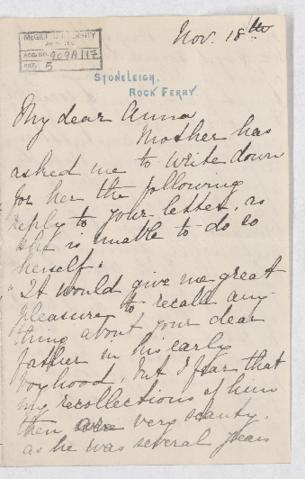 McGILL UNIVERSITY
ACC. NO. 909A/117
REF. 5
Nov. 18th
STONELEIGH,
ROCK FERRY.
My dear Anna
Mother has
asked me to write down
for her the following
reply to your letter, as
she is unable to do so
herself.
"It would give me great
pleasure to recall any-
thing about your dear
father in his early
boyhood, but I fear that
my recollections of him
then are very scanty,
as he was several years